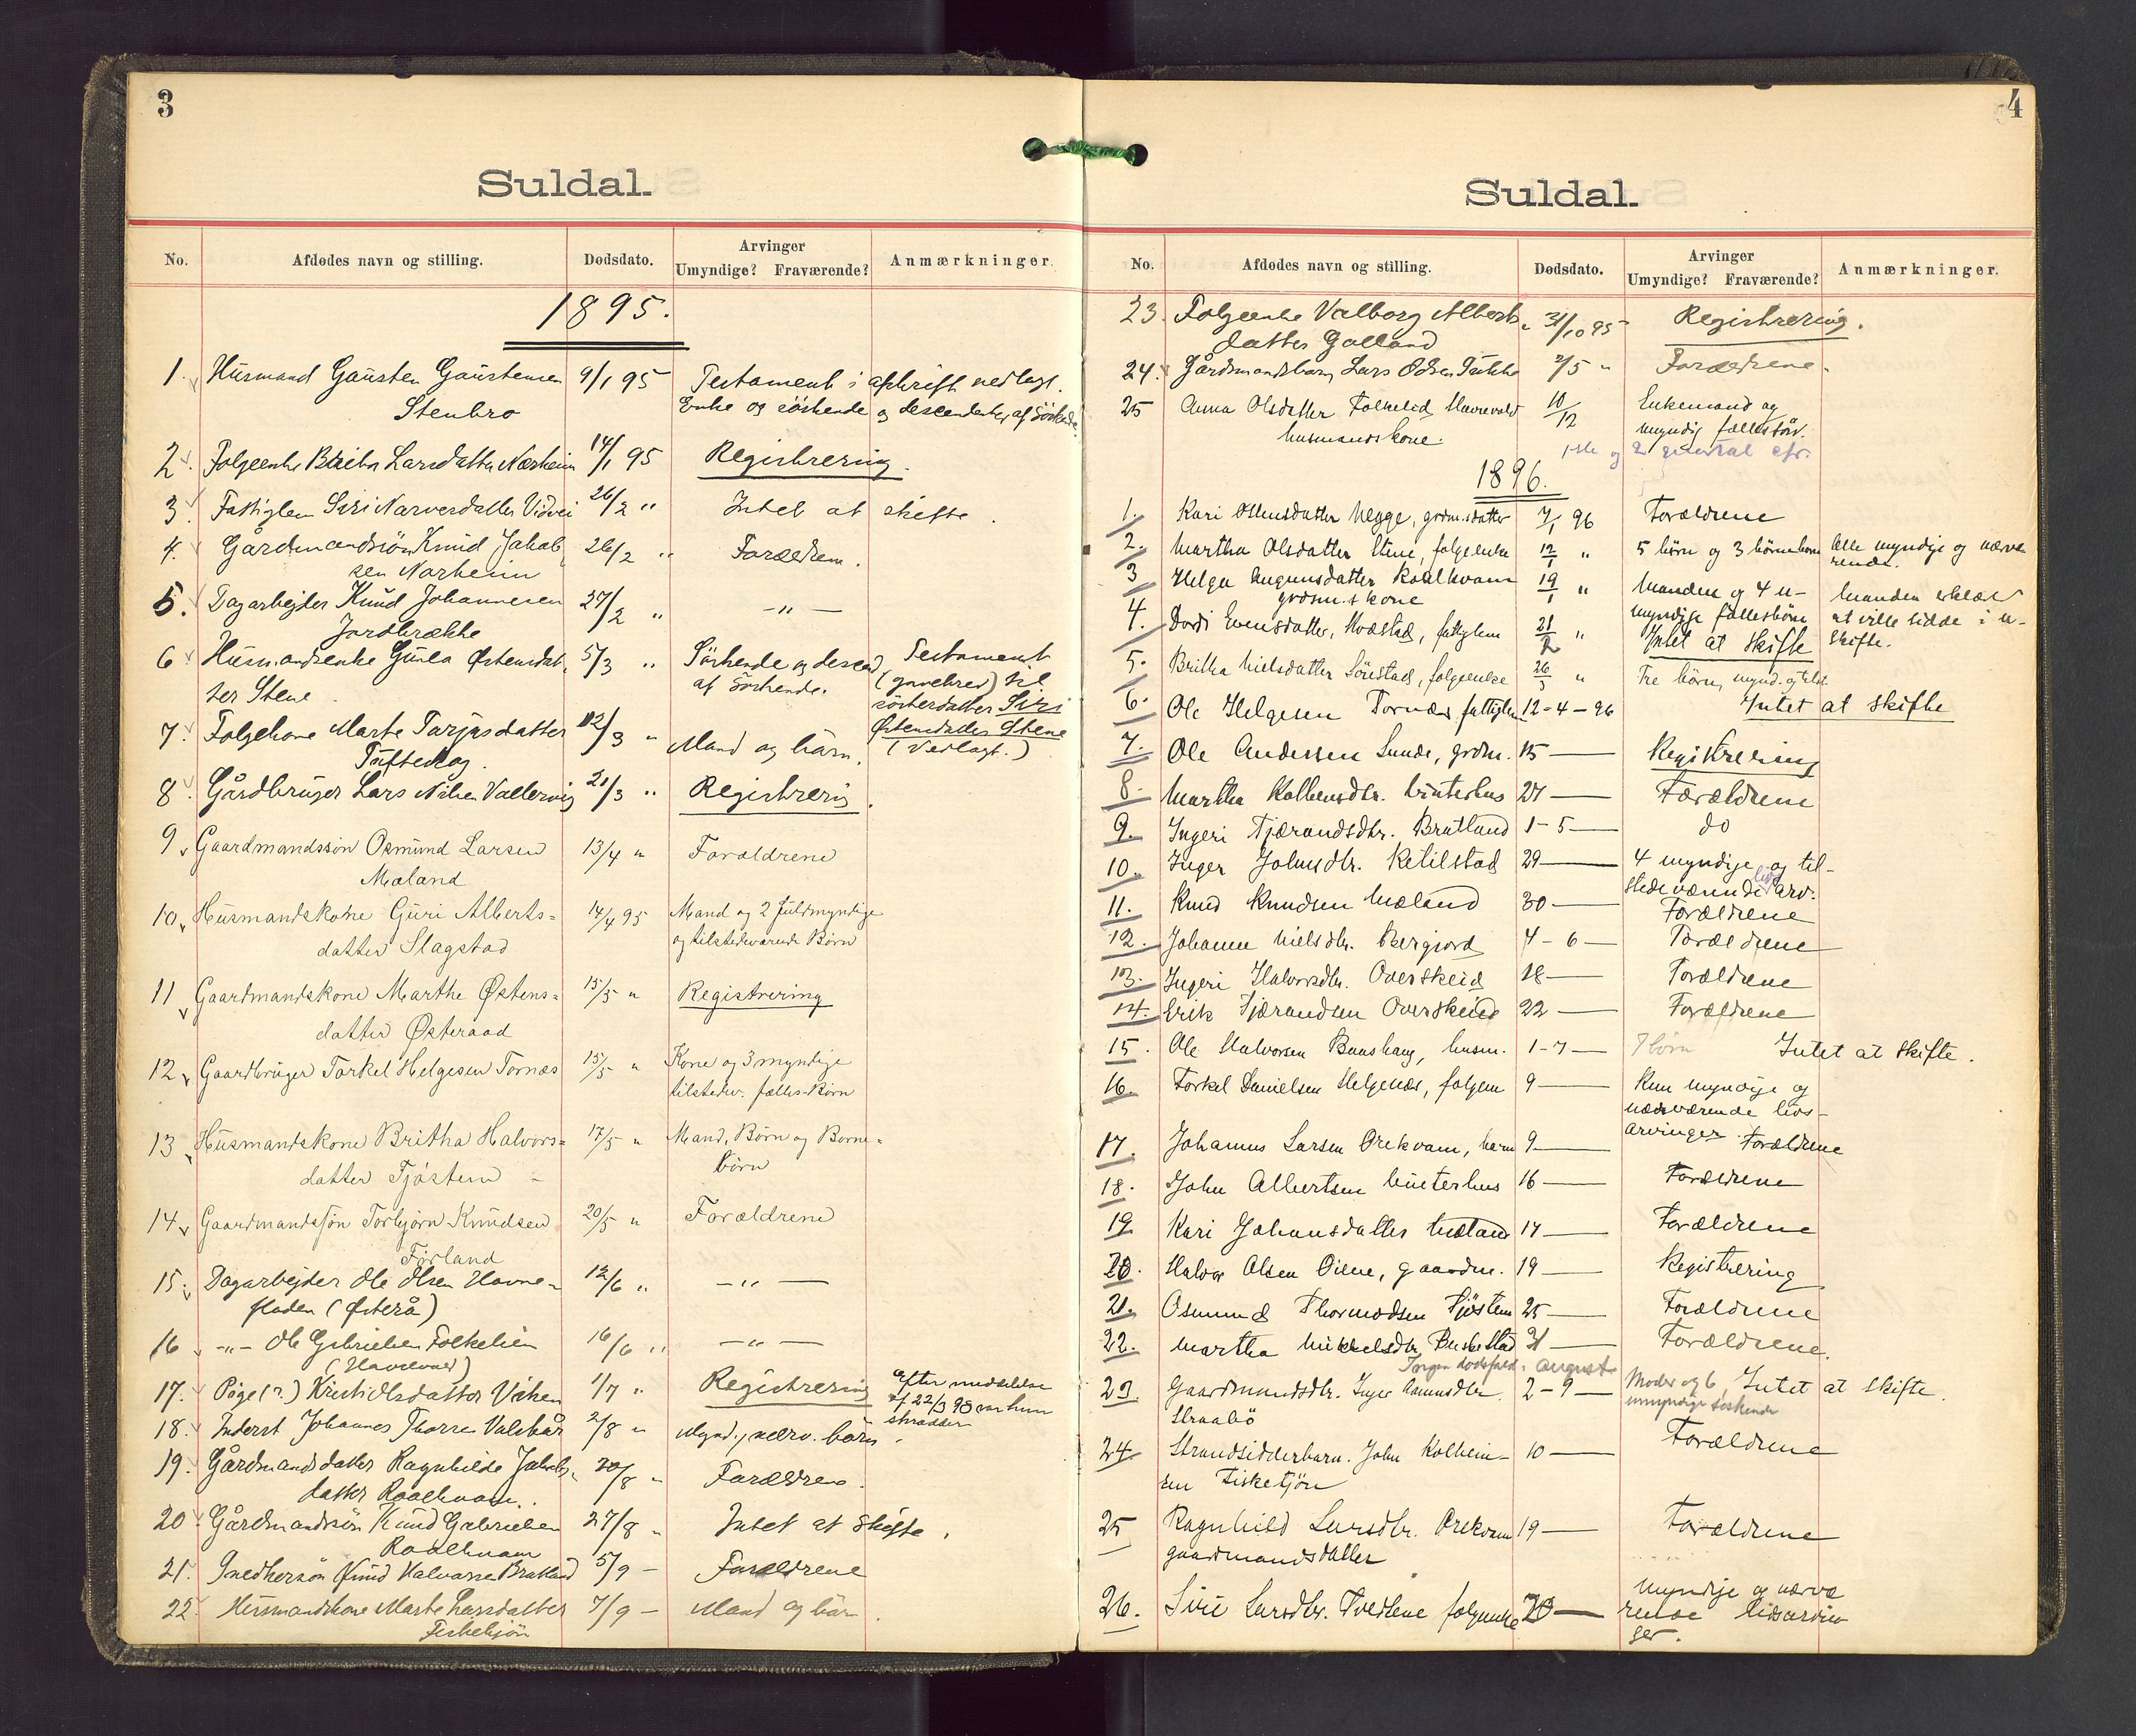 3
Suldal.
No. Afdødes navn og stilling. Dødsdato. Arvinger Umyndige? Fraværende? Anmærkninger.
1895.
1. Husmand Gausten Gaustensen 9/1 95 Testament i afskrift vedlagt.
Stenbro Enke og söskende og descendenter af Söskende.
2. Folgeenke Larsdatter Nærheim 14/1 95 Registrering.
3. Fattiglem Siri Narvesdatter 26/2 " Intet at skifte.
4. Gårdmandsön Knud Jakob- 26/2 " Forældrene.
sen Nærheim
5. Dagarbejder Knud Johannesen 27/2 " -"-
Jordbrække
6 Husmandsenke Gunla Østensdat- 5/3 " Söskende og descend. Testament
ter Stene af Söskende. (gavebrev) til
sösterdatter Siri
Østensdatter Stene
(Vedlagt.)
7. Folgekone Marte Tarjasdatter 12/3 " Mand og børn.
8. Gårdbruger Lars Nilsen 21/3 " Registrering.
9 Gaardmandssön Osmund Larsen 13/4 " Forældrene
Mæland
10. Husmandskone Guri Alberts- 14/4 95 Mand og 2 fuldmyndige
datter Slagstad og tilstedeværende Børn
11 Gaardmandskone Marthe Østens- 15/5 " Registrering
datter Østeraad
12 Gaardbruger Torkel Helgesen Tornæs 15/5 " Kone og 3 myndige
tilstedev. fælles-Børn
13 Husmandskone Britha Halvors- 17/5 " Mand, Børn og Borne-
datter Tjöstem börn
14 Gaardmandssön Torbjørn Knudsen 20/5 " Forældrene
Førland
15. Dagarbejder Ole Olsen Havne- 12/6 " -"-
floden (Østerå)
16 -"- Ole Gabrielsen Folkelien 16/6 " -"-
17. Pige (?) Olsdatter 1/7 " Registrering Efter meddelelse
af 22/3 98 var hun
18. Inderst Johannes 2/8 " Mynd., nærv. børn.
19. Gårdmandsdatter Ragnhilde Jakobs- 20/8 " Forældrene.
datter Roalkvam.
20 Gårdmandssön Knud Gabrielsen 27/8 " Intet at skifte.
Roalkvam
21. Knud Halvorsen Bratland 5/9 - Forældrene
22. Husmandskone Marte Larsdatter 7/9 - Mand og børn.
Fisketjön
4
Suldal.
No. Afdødes navn og stilling. Dødsdato. Arvinger Umyndige? Fraværende? Anmærkninger.
23. Folgeenke Valborg Alberts- 31/10 95 Registrering.
datter
24. Gårdmandsbarn Lars Odsen 2/5 " Forældrene.
25 Anna Olsdatter Folkelid 10/12 Enkemand og
husmandskone. myndig
1ste og 2
1896.
1. Kari Østensdatter Hegge, grdm.sdatter 7/1 96 Forældrene
2. Martha Olsdatter Stene, folgeenke 12/1 " 5 börn og 3 börneborn Alle myndige og nærvæ-
rende.
3 Helga Roalkvam 19/1 " Manden og 4 u- Manden erklær
grdm.s kone myndige fællesbörn at ville sidde i u-
4. Dordi Evensdatter, fattiglem 21/2 " Intet at skifte skifte.
5. Britha Nielsdatter Sönstad, folgeenke 26/3 " Tre börn, mynd. og
6. Ole Helgesen Tornæs fattiglem 12-4-96 Intet at skifte
7. Ole Andersen Lunde, grdm. 15 — Registrering
8. Martha Kolbensdtr. Vinterhus 27 — Forældrene
9. Ingeri Tjærandsdtr. Bratland 1-5 — do
10. Inger Johnsdtr. Ketilstad 29 — 4 myndige og til-
stedeværende livsarv.
11. Knud Knudsen Mæland 30 — Forældrene
12. Johanne Nielsdtr. Bergjord 4-6 — Forældrene
13. Ingeri Halvorsdtr. Overskeid 18 — Forældrene
14. Erik Tjærandsen Overskeid 22 — Forældrene
15. Ole Halvorsen Baushaug, husm. 1-7 — 7 börn Intet at skifte.
16. Torkel Danielsen Helgenæs, folgem 9 — Kun myndige og
nærværende livs-
arvinger
17. Johannes Larsen Drekvam, barn 9 — Forældrene
18. John Albertsen Vinterhus 16 — Forældrene
19 Kari Johansdatter Mæland 17 — Forældrene
20. Halvor Olsen Öiene, gaardm. 19 — Registrering
21. Osmund Thormodsen Tjöstem 25 — Forældrene
22. Martha Mikkelsdtr. 31 — Forældrene.
Ingen dødsfald i august
23. Gaardmandsdtr. Inger 2-9 — Moder og 6 umyndige söskende Intet at skifte.
Straabö
24. Strandsidderbarn. John Kolbein- 10 — Forældrene
sen Fisketjön
25 Ragnhild Larsdtr. Drekvam 19 — Forældrene
gaardmandsdatter
26. Siri Larsdtr. folgeenke 20 — Myndige og nærvæ
rende livsarvin
ger.